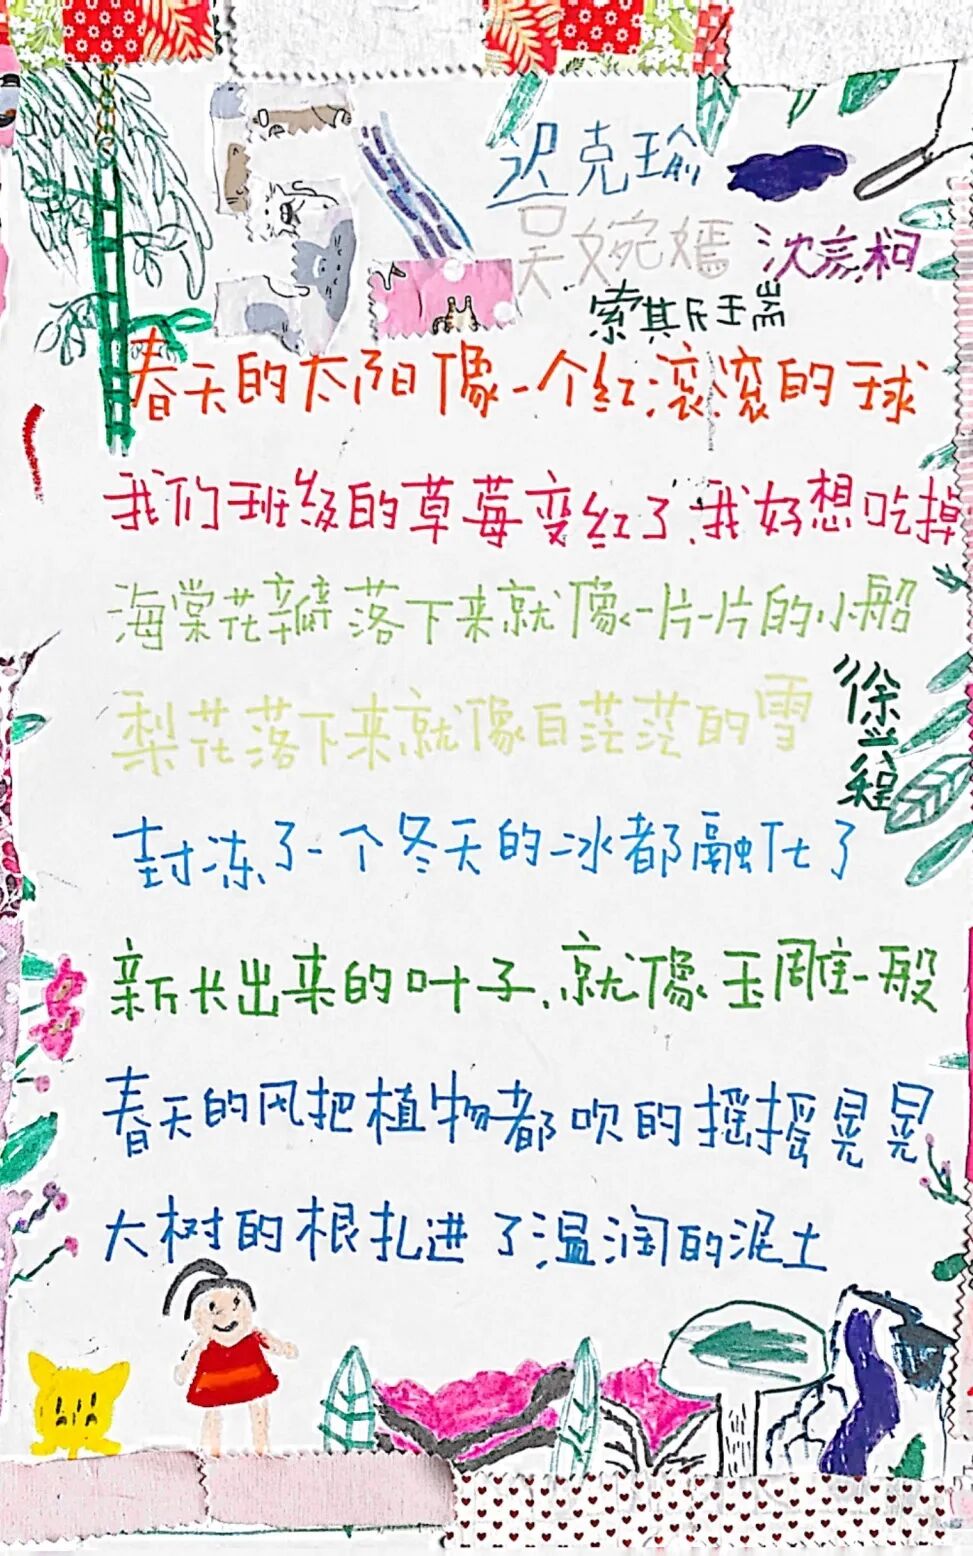 迟克瑜
吴婉嫣 沈彦柯
索其斥玉耑
春天的太阳像一个红滚滚的球
我们班级的草莓变红了,我好想吃掉
海棠花瓣落下来就像一片一片的小船
梨花落下来就像白茫茫的雪
徐尝程
封冻了一个冬天的冰都融化了
新长出来的叶子,就像玉雕一般
春天的风把植物都吹的摇摇晃晃
大树的根扎进了温润的泥土